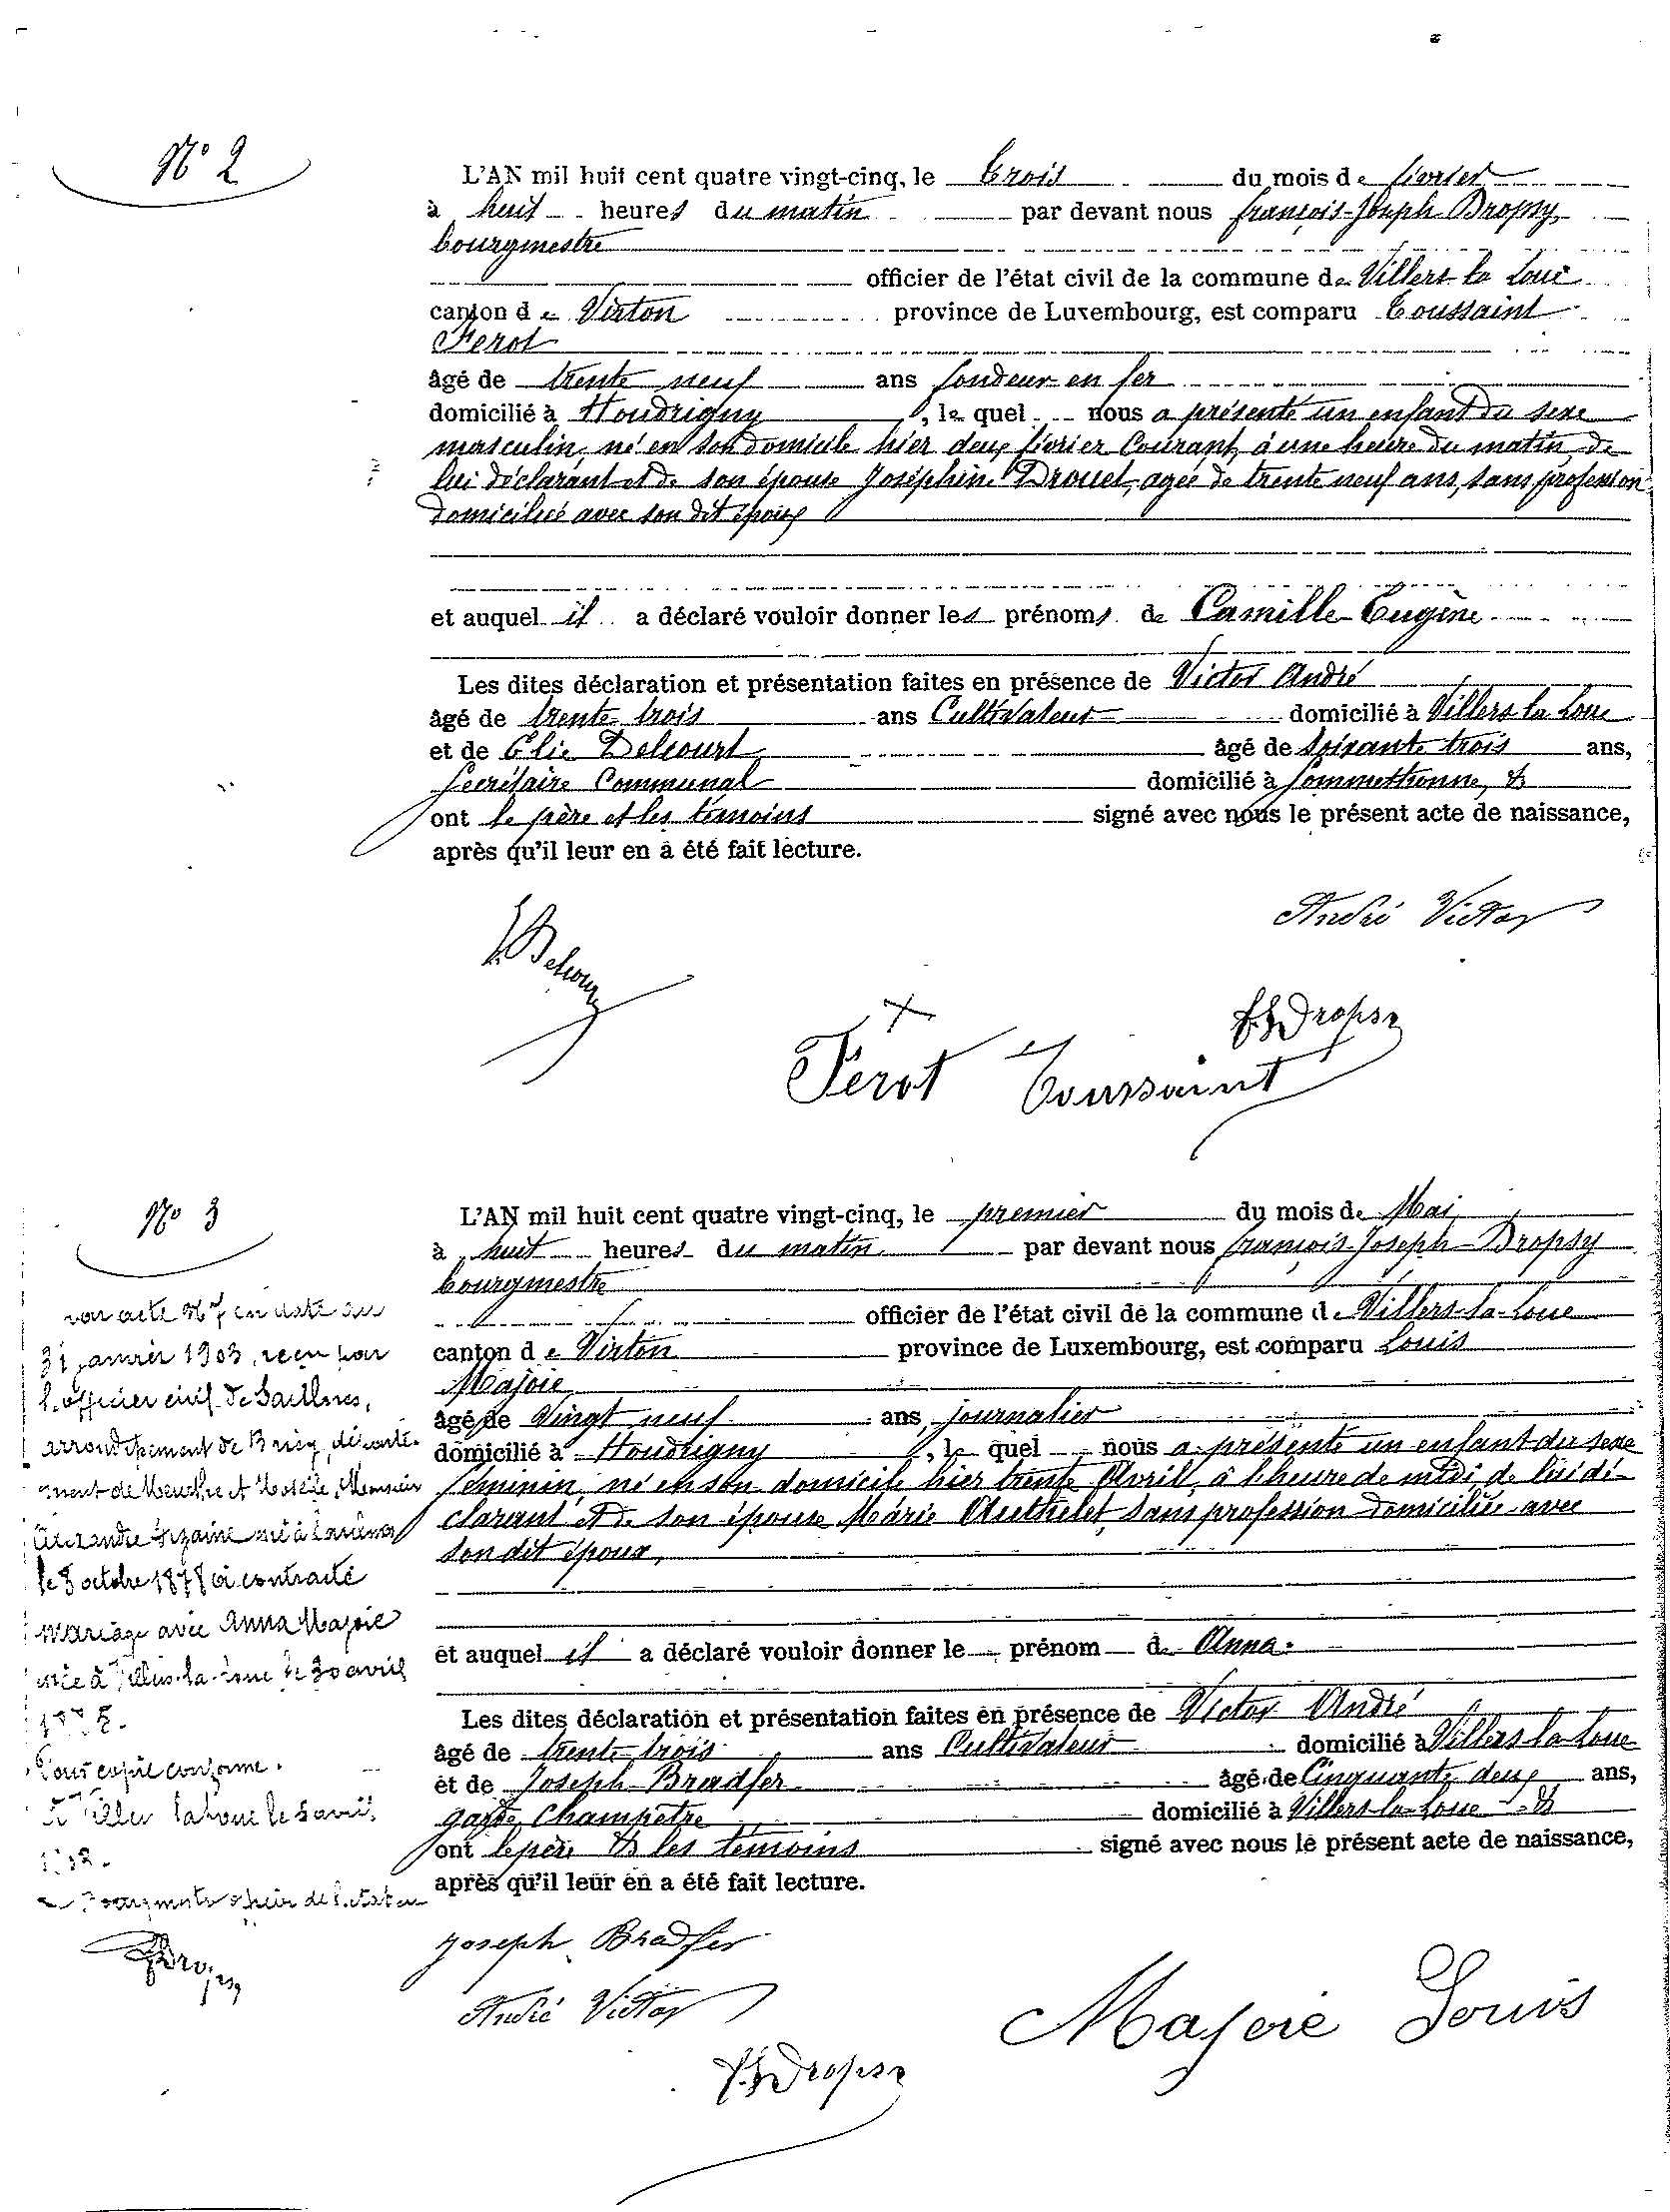 N° 2
L'AN mil huit cent quatre vingt-cinq, le trois du mois de février
à huit heures du matin par devant nous françois-Joseph Dropsy,
bourgmestre
officier de l'état civil de la commune de Villers la Loue
canton de Virton province de Luxembourg, est comparu Toussaint
Ferot
âgé de trente neuf ans fondeur en fer
domicilié à Houdrigny, le quel nous a présenté un enfant du sexe
masculin, né en son domicile hier deux février Courant, à une heure du matin, de
lui déclarant et de son épouse Joséphine Drouet, agée de trente neuf ans, sans profession
domiciliée avec son dit époux
et auquel il a déclaré vouloir donner les prénoms de Camille Eugène
Les dites déclaration et présentation faites en présence de Victor André
âgé de trente trois ans Cultivateur domicilié à Villers la Loue
et de Elie Delcourt âgé de soixante trois ans,
Secrétaire Communal domicilié à Sommethonne, &
ont le père et les témoins signé avec nous le présent acte de naissance,
après qu'il leur en a été fait lecture.
André Victor
F.J. Dropsy
Ferot Toussaint
N° 3
L'AN mil huit cent quatre vingt-cinq, le premier du mois de Mai
à huit heures du matin par devant nous françois-Joseph-Dropsy
bourgmestre
officier de l'état civil de la commune de Villers-la-Loue
canton de Virton province de Luxembourg, est comparu Louis
Majoie
âgé de Vingt neuf ans, journalier
domicilié à Houdrigny, le quel nous a présenté un enfant du sexe
féminin, né en son domicile hier trente Avril, à l'heure de midi, de lui dé-
clarant et de son épouse Marie Authelet, sans profession domiciliée avec
son dit époux,
et auquel il a déclaré vouloir donner le prénom de Anna.
Les dites déclaration et présentation faites en présence de Victor André
âgé de trente trois ans Cultivateur domicilié à Villers la Loue
et de Joseph Bradfer âgé de Cinquante deux ans,
garde Champêtre domicilié à Villers-la-Loue &
ont le père & les témoins signé avec nous le présent acte de naissance,
après qu'il leur en a été fait lecture.
par acte N° 7 en date du
31 janvier 1903, reçu par
l'officier civil de
arrondissement de Briey, départe-
ment de Meurthe et Moselle, Monsieur
Alexandre né à
le 8 octobre 1878 a contracté
mariage avec Anna Majoie
née à Villers-la-Loue le 30 avril
Pour copie conforme.
à Villers la Loue le avril
Joseph Bradfer
André Victor
Majoie Louis
F.J. Dropsy